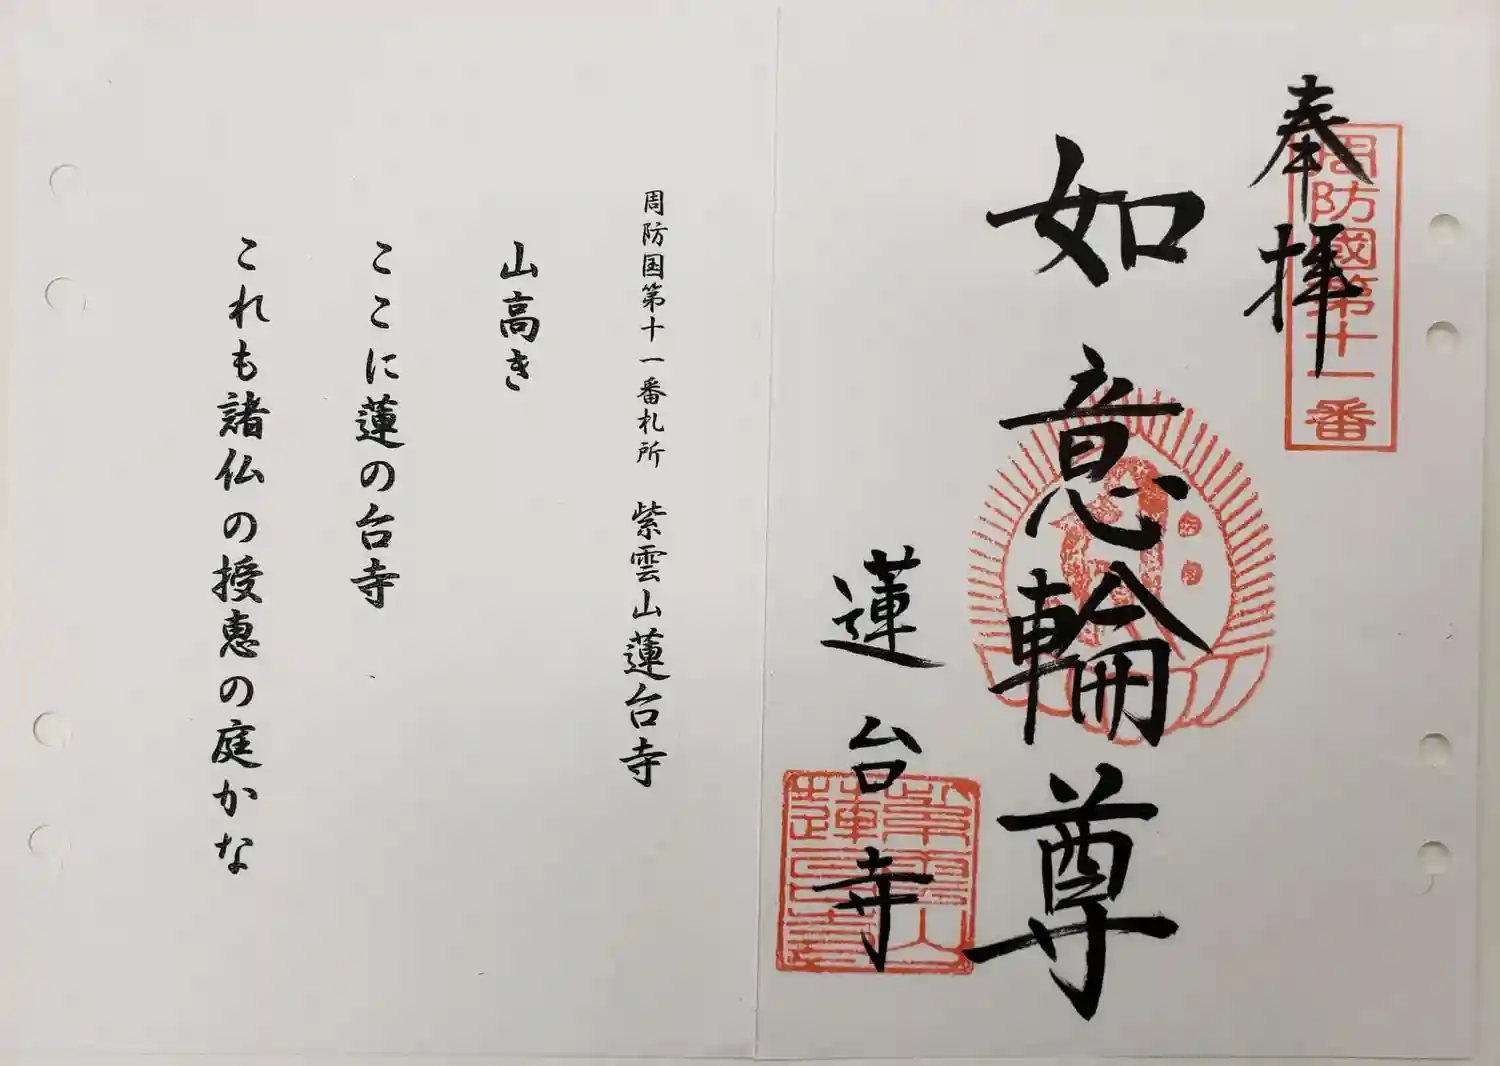 奉拝
周防國第十一番
如意輪尊
蓮台寺
紫雲山
蓮台寺
周防国第十一番札所 紫雲山蓮台寺
山高き
ここに蓮の台寺
これも諸仏の授恵の庭かな